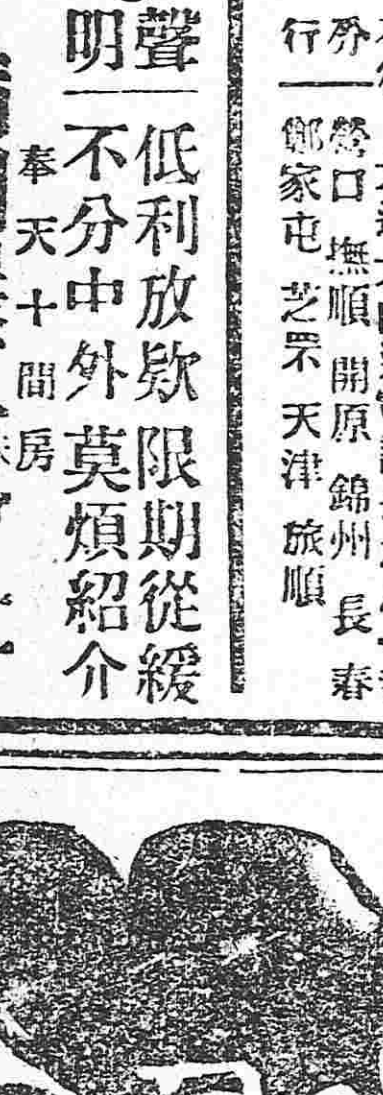 營口 撫順 開原 錦州 長春
行
鄭家屯 芝罘 天津 旅順
聲明
低利放欵 限期從緩
不分中外 莫煩紹介
奉天十間房